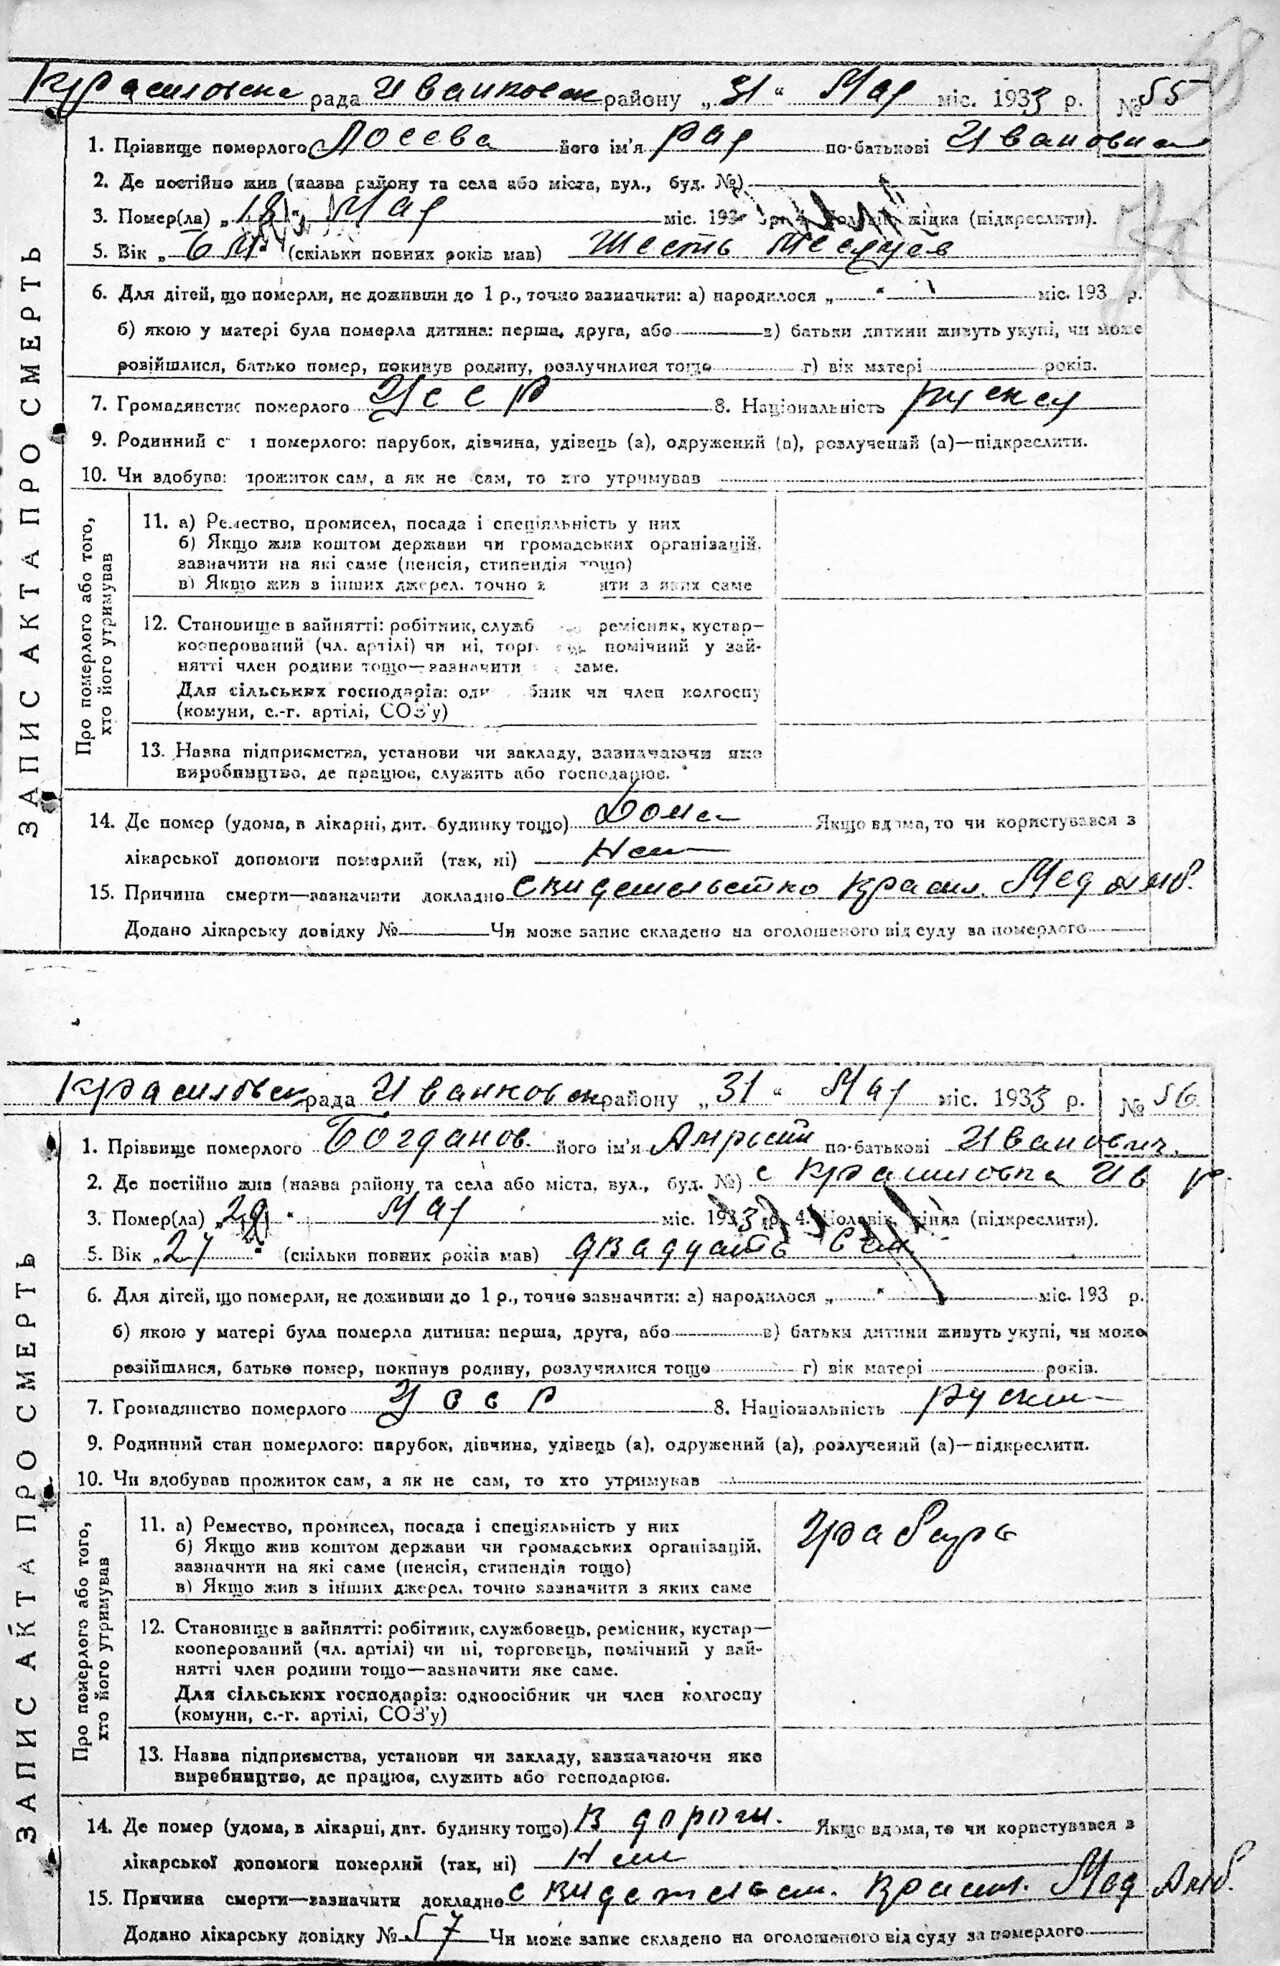 58
Красиловска рада Иванковск району „31“ Мая міс. 1933 р. № 55
1. Прізвище померлого Лосева його ім'я Рая по-батькові Ивановна
2. Де постійно жив (назва району та села або міста, вул., буд. №)
3. Помер(ла) „18“ Мая міс. 193 р. 4. Чоловік, жінка (підкреслити).
5. Вік „6 м“ (скільки повних років мав) Шесть месяцев
6. Для дітей, що померли, не доживши до 1 р., точно зазначити: а) народилося „ “ міс. 193 р.
б) якою у матері була померла дитина: перша, друга, або в) батьки дитини живуть укупі, чи може
розійшлися, батько помер, покинув родину, розлучилися тощо г) вік матері років.
7. Громадянство померлого УССР 8. Національність руская
9. Родинний с н померлого: парубок, дівчина, удівець (а), одружений (а), розлучений (а)—підкреслити.
10. Чи здобував прожиток сам, а як не сам, то хто утримував
ЗАПИС АКТА ПРО СМЕРТЬ
Про померлого або того, хто його утримував
11. а) Ремество, промисел, посада і спеціяльність у них
б) Якщо жив коштом держави чи громадських організацій,
зазначити на які саме (пенсія, стипендія тощо)
в) Якщо жив з інших джерел, точно з яти з яких саме
12. Становище в зайнятті: робітник, служб ремісник, кустар—
кооперований (чл. артілі) чи ні, торг помічний у зай-
нятті член родини тощо—зазначити саме.
Для сільських господарів: оди бник чи член колгоспу
(комуни, с.-г. артілі, СОЗ'у)
13. Назва підприємства, установи чи закладу, зазначаючи яке
виробництво, де працює, служить або господарює.
14. Де помер (удома, в лікарні, дит. будинку тощо) Дома Якщо вдома, то чи користувався з
лікарської допомоги померлий (так, ні) Нет
15. Причина смерти—зазначити докладно свидетельство Красил. Мед амб.
Додано лікарську довідку № Чи може запис складено на оголошеного від суду за померлого
Красиловск рада Иванковск району „31“ Мая міс. 1933 р. № 56
1. Прізвище померлого Богданов. його ім'я по-батькові Иванович.
2. Де постійно жив (назва району та села або міста, вул., буд. №) с Красиловка Ив р.
3. Помер(ла) „29“ Мая міс. 1933 р. 4. Чоловік, жінка (підкреслити).
5. Вік „27“ (скільки повних років мав) двадцать сем
6. Для дітей, що померли, не доживши до 1 р., точно зазначити: а) народилося „ “ міс. 193 р.
б) якою у матері була померла дитина: перша, друга, або в) батьки дитини живуть укупі, чи може
розійшлися, батько помер, покинув родину, розлучилися тощо г) вік матері років.
7. Громадянство померлого УССР 8. Національність руский
9. Родинний стан померлого: парубок, дівчина, удівець (а), одружений (а), розлучений (а)—підкреслити.
10. Чи здобував прожиток сам, а як не сам, то хто утримував
ЗАПИС АКТА ПРО СМЕРТЬ
Про померлого або того, хто його утримував
11. а) Ремество, промисел, посада і спеціяльність у них
Грабарь
б) Якщо жив коштом держави чи громадських організацій,
зазначити на які саме (пенсія, стипендія тощо)
в) Якщо жив з інших джерел, точно зазначити з яких саме
12. Становище в зайнятті: робітник, службовець, ремісник, кустар—
кооперований (чл. артілі) чи ні, торговець, помічний у зай-
нятті член родини тощо—зазначити яке саме.
Для сільських господарів: одноосібник чи член колгоспу
(комуни, с.-г. артілі, СОЗ'у)
13. Назва підприємства, установи чи закладу, зазначаючи яке
виробництво, де працює, служить або господарює.
14. Де помер (удома, в лікарні, дит. будинку тощо) В дороги. Якщо вдома, то чи користувався з
лікарської допомоги померлий (так, ні) Нет
15. Причина смерти—зазначити докладно свидетельст. Красил. Мед Амб.
Додано лікарську довідку № 57 Чи може запис складено на оголошеного від суду за померлого